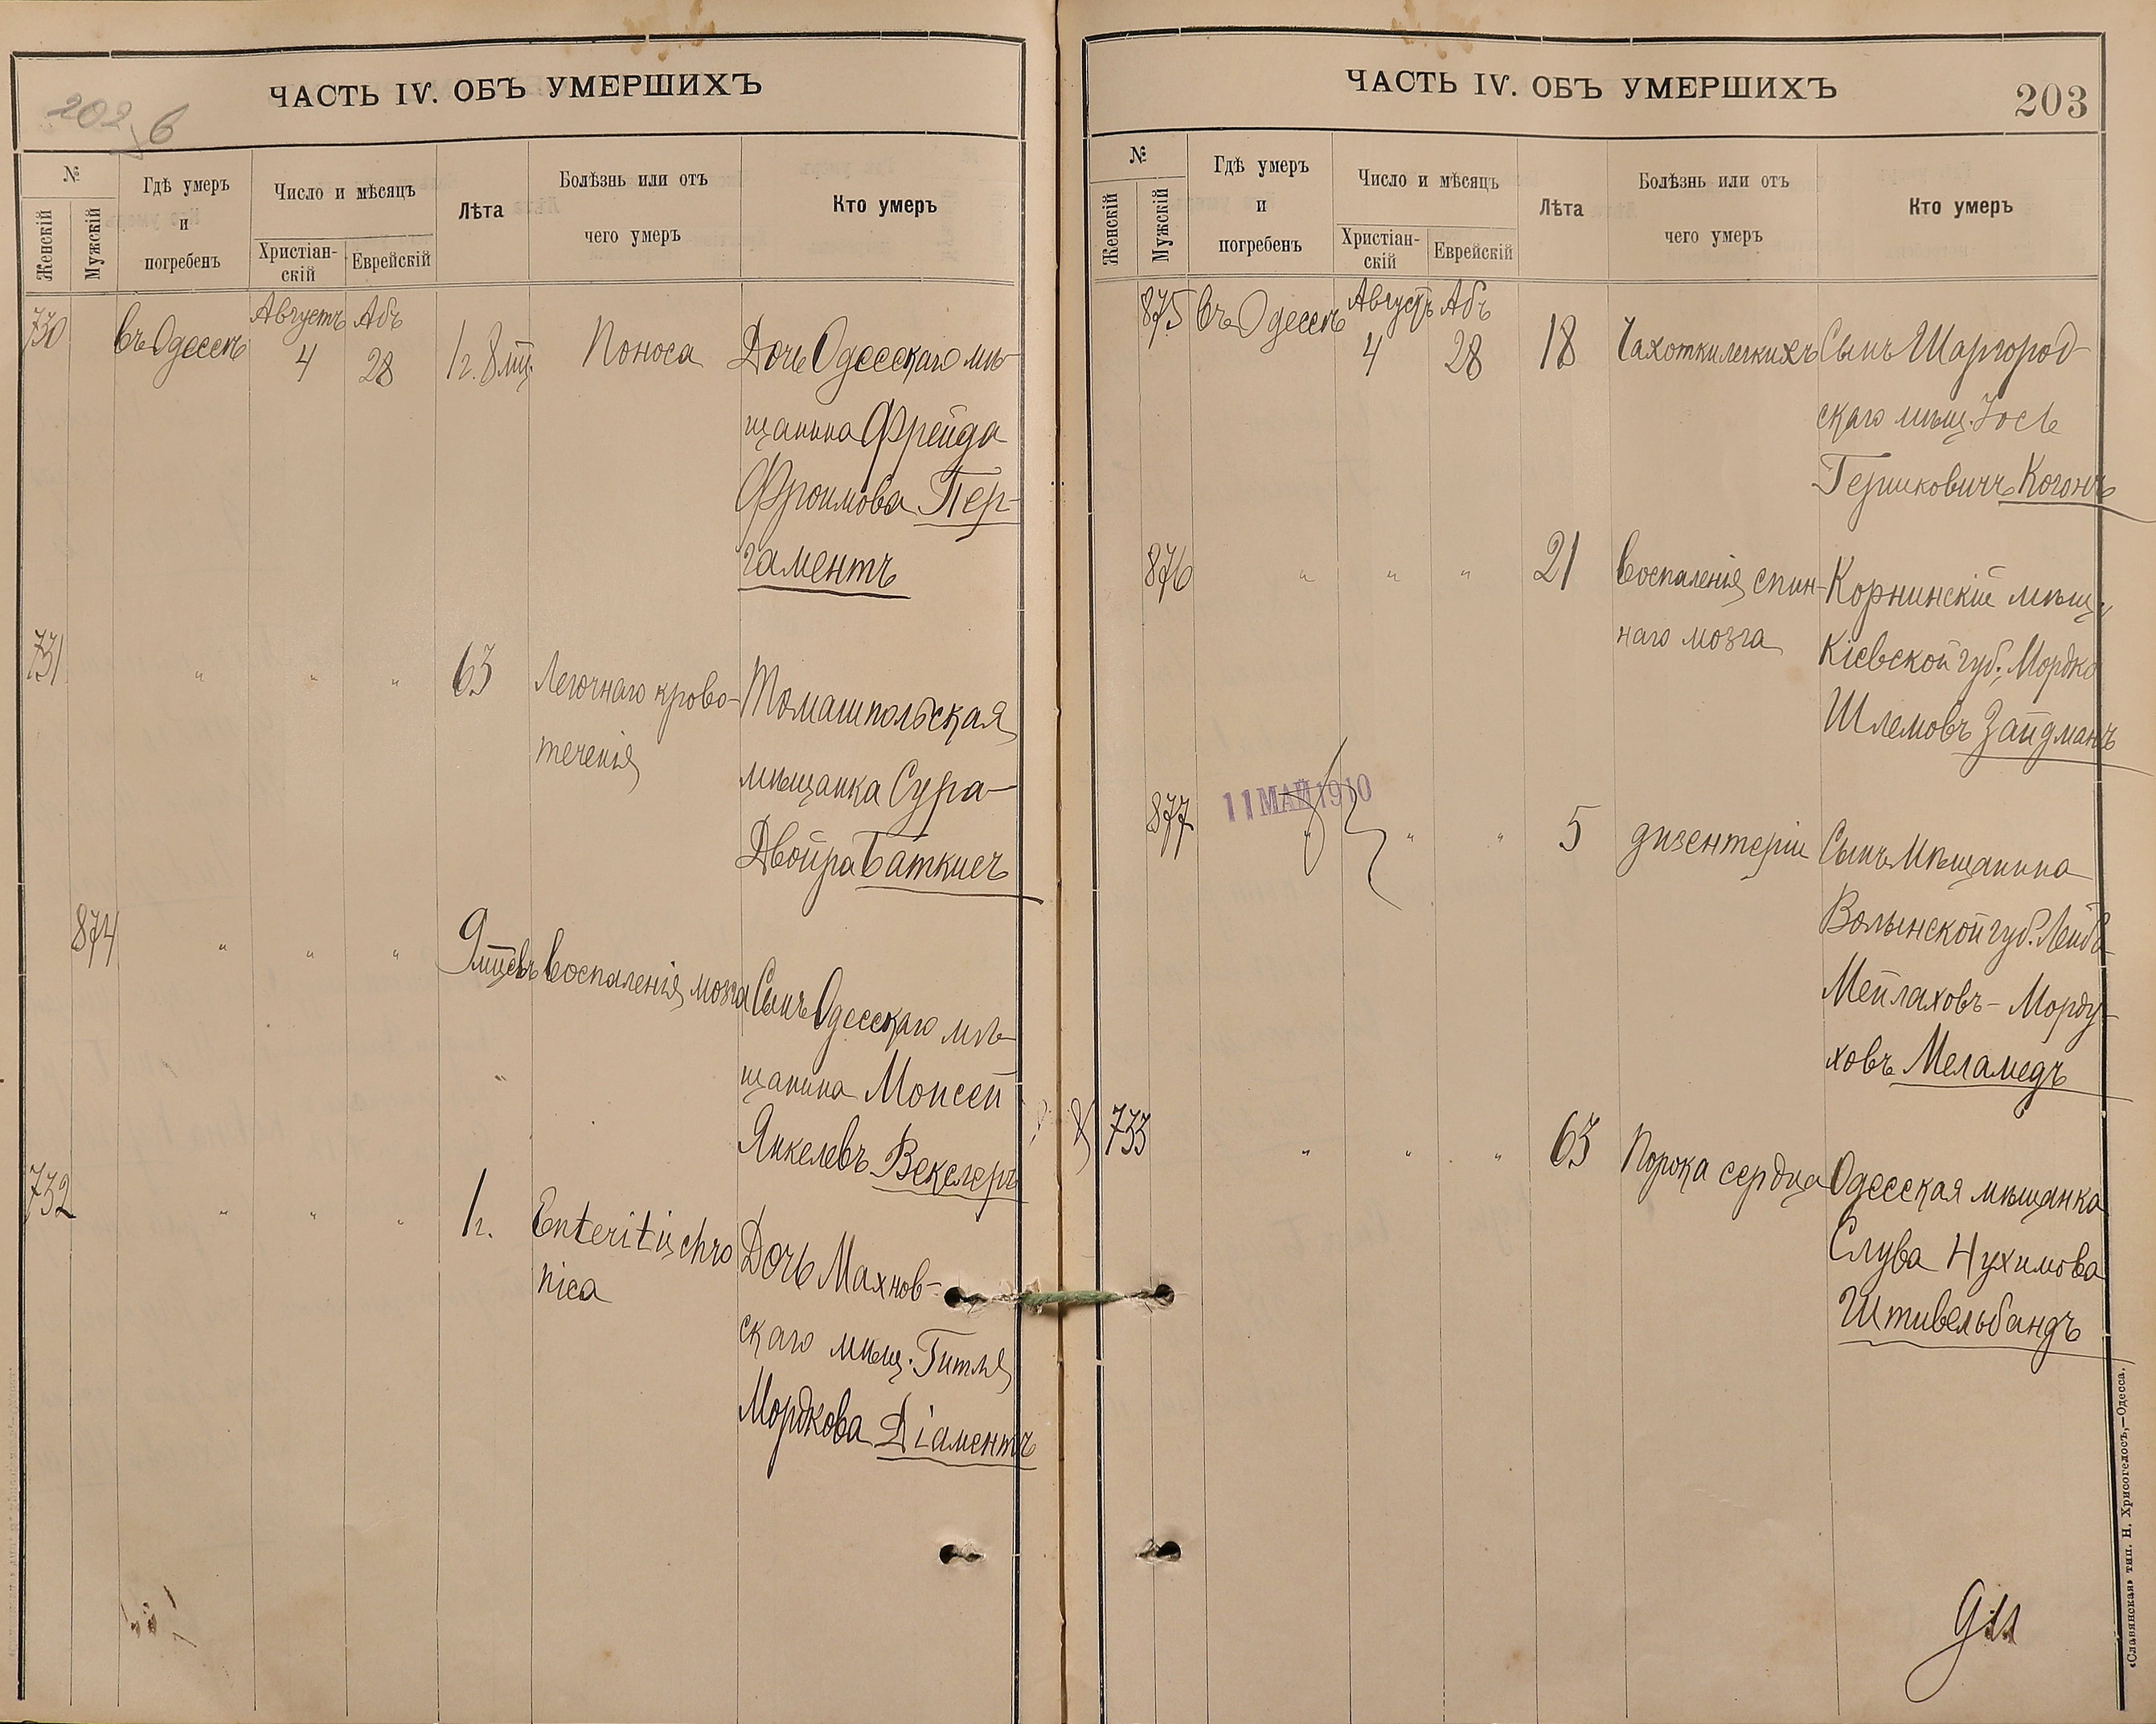 202 б
ЧАСТЬ IV. ОБЪ УМЕРШИХЪ
№
Женскій
Мужскій
Гдѣ умеръ
и
погребенъ
Число и мѣсяцъ
Христіан-
скій
Еврейскій
Лѣта
Болѣзнь или отъ
чего умеръ
Кто умеръ
730 въ Одессѣ Августъ 4 Абъ 28 1 г. 8 мц. Поноса Дочь Одесскаго мѣ-
щанина Фрейда
Фроимова Пер-
гаментъ
731 " " " 63 Легочнаго крово- Томашпольская
теченія мѣщанка Сура-
Двойра Баткисъ
874 " " " 9 мцевъ воспаленія мозга Сынъ Одесскаго мѣ-
щанина Моисей
Янкелевъ Векслеръ
732 " " " 1 г. Enteritis chro Дочь Махнов-
nica скаго мѣщ. Гитля
Мордкова Діаментъ
ЧАСТЬ IV. ОБЪ УМЕРШИХЪ
203
№
Женскій
Мужскій
Гдѣ умеръ
и
погребенъ
Число и мѣсяцъ
Христіан-
скій
Еврейскій
Лѣта
Болѣзнь или отъ
чего умеръ
Кто умеръ
875 въ Одессѣ Августъ 4 Абъ 28 18 Чахотки легкихъ Сынъ Шаргород-
скаго мѣщ. Іось
Гершковичъ Когонъ
876 " " " 21 воспаленія спин- Корнинскій мѣщ.
наго мозга Кіевской губ. Мордко
Шлемовъ Зайдманъ
11 МАЙ 1910
877 " " " 5 дизентеріи Сынъ Мѣщанина
Волынской губ. Лейба
Мейлаховъ-Морду-
ховъ Меламедъ
733 " " " 63 Порока сердца Одесская мѣщанка
Слува Нухимова
Штивельбандъ
«Славянская» тип. Н. Хрисогелосъ,—Одесса.